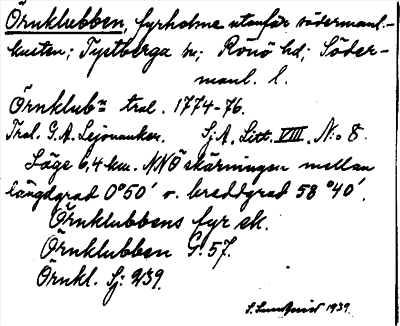 Örnklubben, fyrholme utanför södermanl.-
kusten; Tystberga sn; Rönö hd; Söder-
manl. l.
Örnklubn tral. 1774-76.
Tral. G.A. Lejonanker. Sj.A. Litt. VIII. N:o 8.
Läge 6,4 km. NNÖ skärningen mellan
längdgrad 0°50' o. breddgrad 58°40'.
Örnklubbens fyr ek.
Örnklubben G: 57.
Örnkl. Sj: 939.
S. Lundqvist 1939.